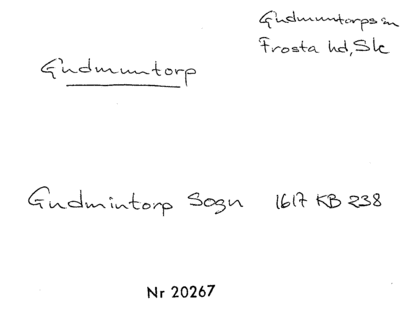 Gudmuntorps sn
Frosta hd, Sk
Gudmuntorp
Gudmintorp Sogn 1617 KB 238
Nr 20267